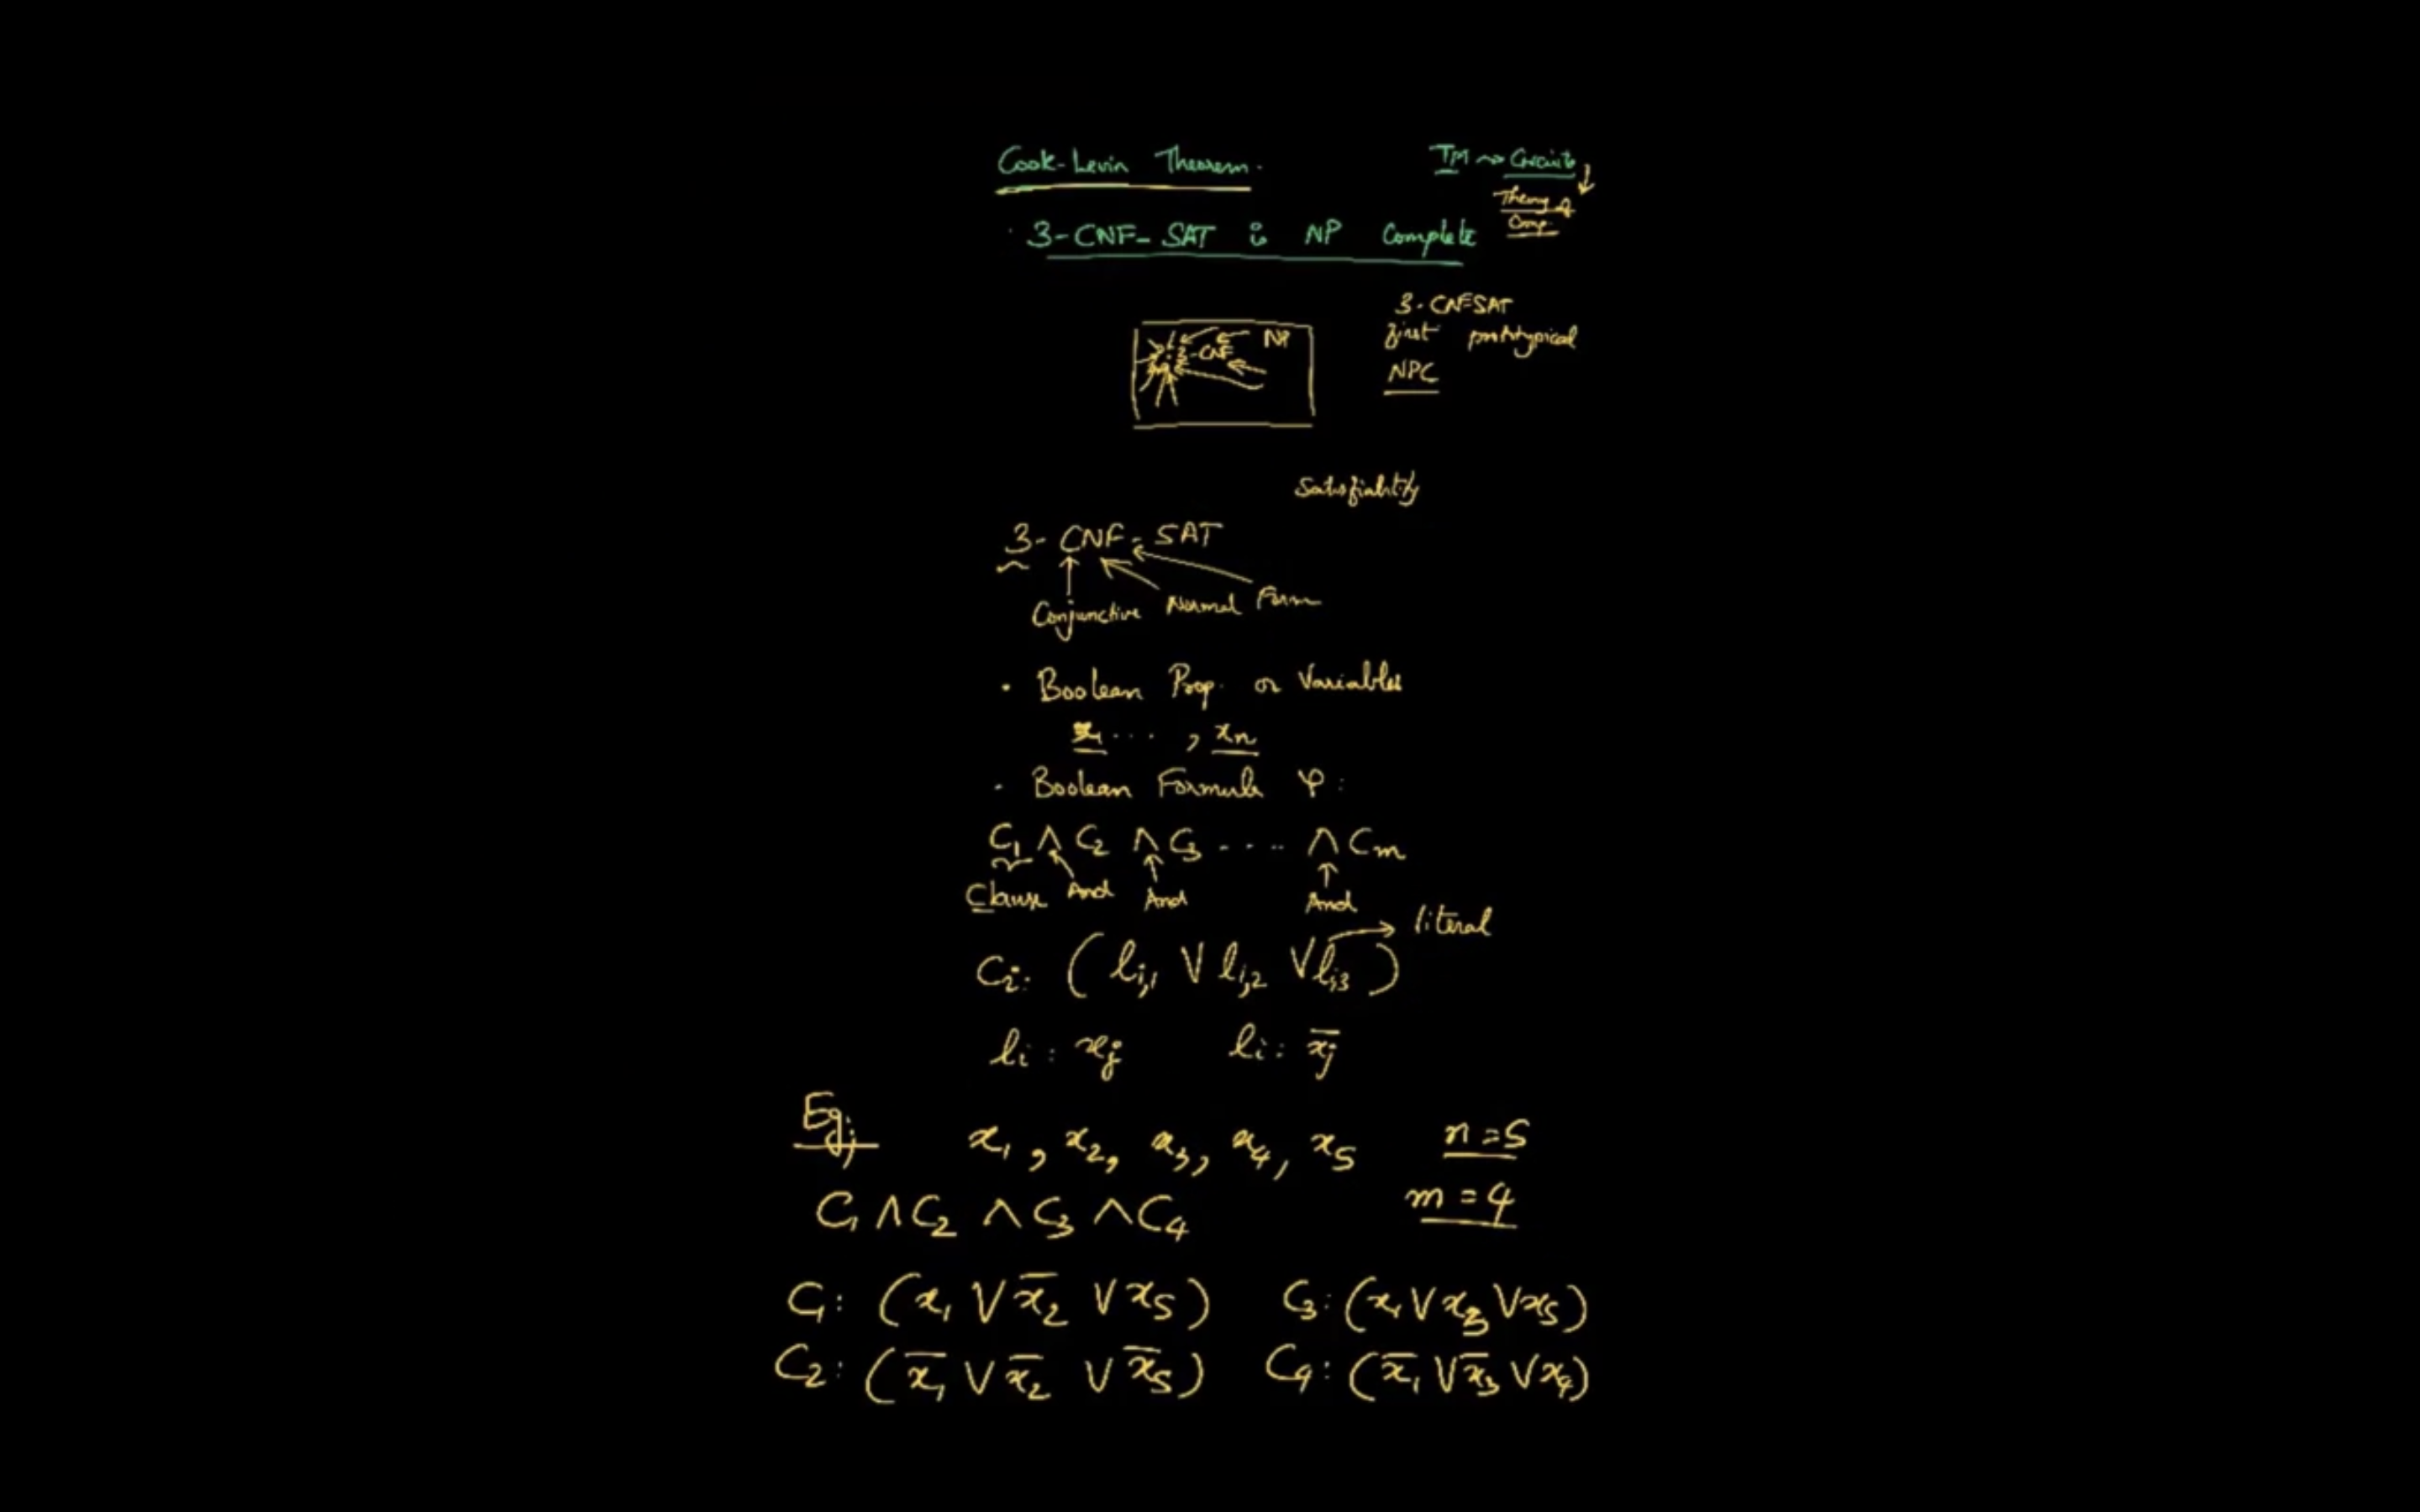 Cook-Levin Theorem.
TM ~> Circuits
Theory of
Comp.
3-CNF-SAT is NP Complete
3-CNFSAT
first prototypical
NPC
NP
3-CNF
Satisfiability
3-CNF-SAT
Conjunctive Normal Form
• Boolean Prop. or Variables
x₁ ... , xₙ
• Boolean Formula φ:
C₁ ∧ C₂ ∧ C₃ .... ∧ Cₘ
Clause And And And
literal
Cᵢ: (lᵢ,₁ ∨ lᵢ,₂ ∨ lᵢ,₃)
lᵢ : xⱼ lᵢ : x̅ⱼ
Eg;
x₁, x₂, x₃, x₄, x₅ n = 5
C₁ ∧ C₂ ∧ C₃ ∧ C₄ m = 4
C₁: (x₁ ∨ x̅₂ ∨ x₅) C₃: (x₁ ∨ x₃ ∨ x₅)
C₂: (x̅₁ ∨ x̅₂ ∨ x̅₅) C₄: (x̅₁ ∨ x̅₃ ∨ x₄)